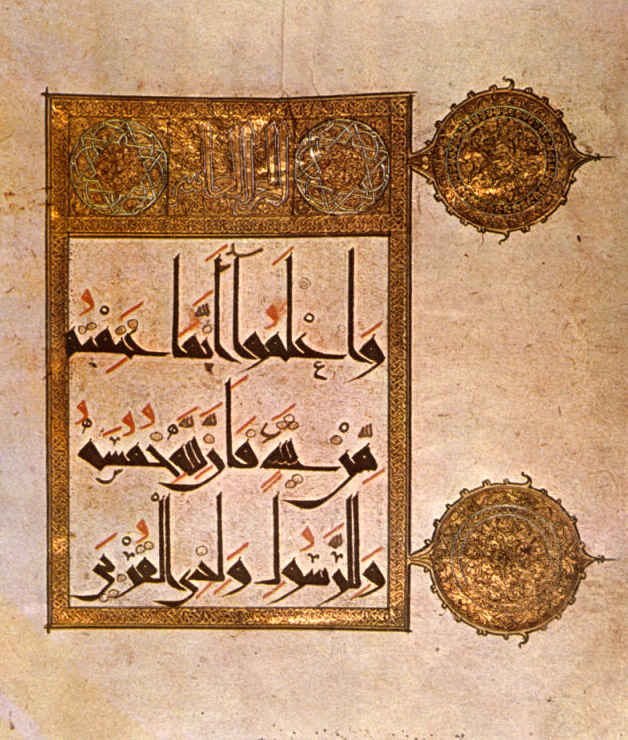 الجزء العاشر
وَاعْلَمُوا أَنَّمَا غَنِمْتُم
مِّنْ شَيْءٍ فَأَنَّ لِلَّهِ خُمُسَهُ
وَلِلرَّسُولِ وَلِذِي الْقُرْبَى